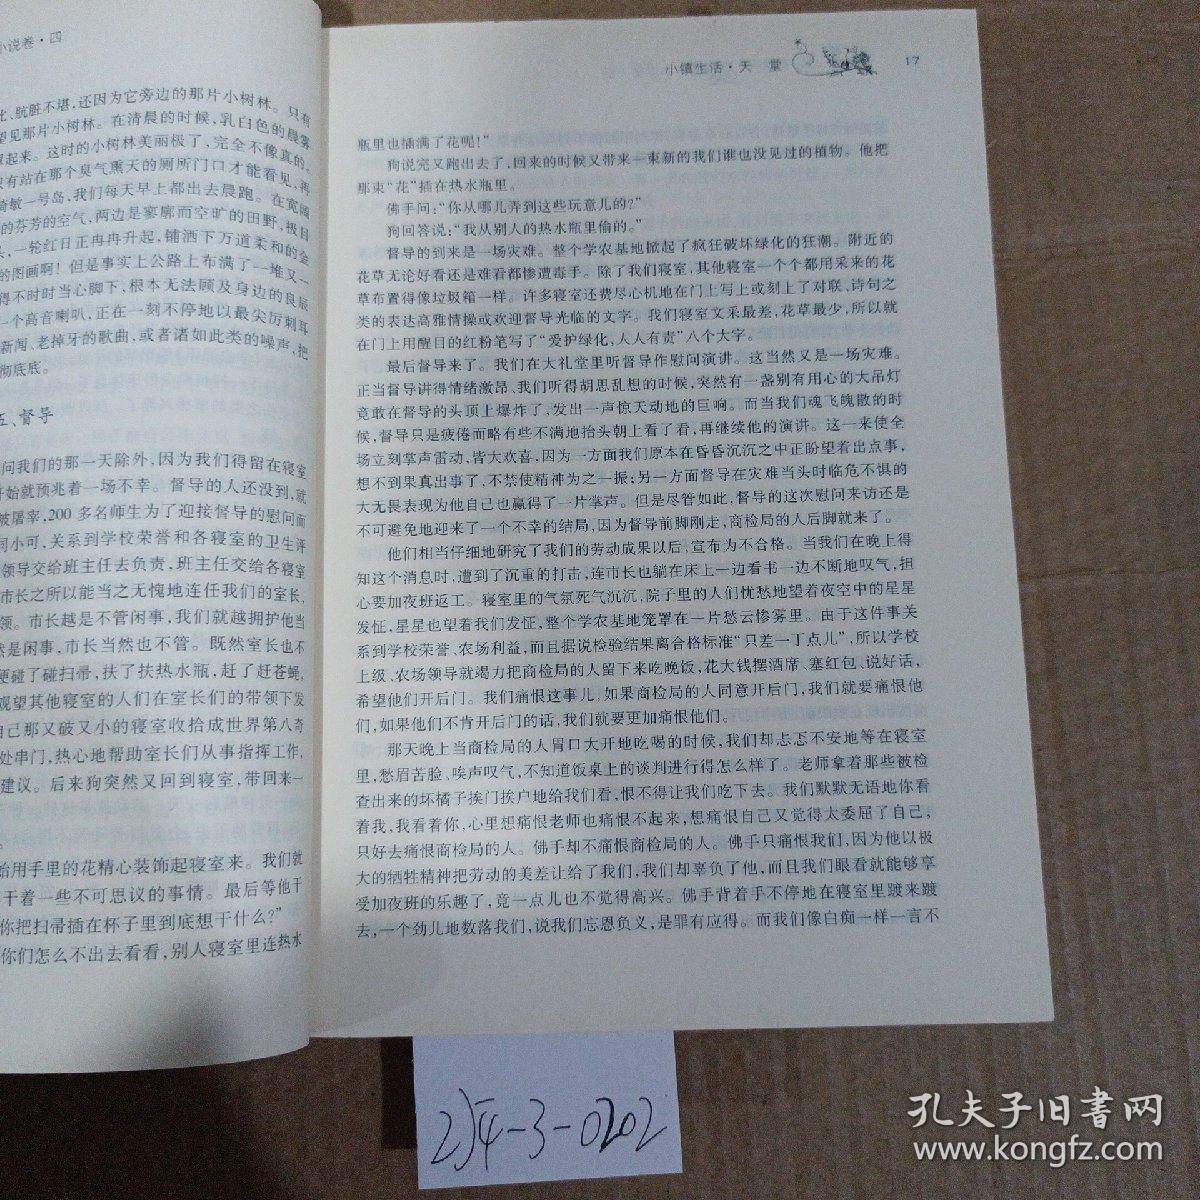 小说卷·四
比、肮脏不堪,还因为它旁边的那片小树林。只有
望见那片小树林。在清晨的时候,乳白色的晨雾
起来。这时的小树林美丽极了,完全不像真的。
有站在那个臭气熏天的厕所门口才能看见,再
敏一号岛,我们每天早上都出去晨跑。在宽阔
的芬芳的空气,两边是寥廓而空旷的田野,极目
一轮红日正冉冉升起,铺洒下万道柔和的金
的图画啊!但是事实上公路上布满了一堆又一
得不时时当心脚下,根本无法顾及身边的良辰
一个高音喇叭,正在一刻不停地以最尖厉刺耳
新闻、老掉牙的歌曲,或者诸如此类的噪声,把
彻底底。
五、督导
问我们的那一天除外,因为我们得留在寝室
开始就预兆着一场不幸。督导的人还没到,就
被屠宰,200多名师生为了迎接督导的慰问而
同小可,关系到学校荣誉和各寝室的卫生评
领导交给班主任去负责,班主任交给各寝室
市长之所以能当之无愧地连任我们的室长,
领。市长越是不管闲事,我们就越拥护他当
然是闲事,市长当然也不管。既然室长也不
便碰了碰扫帚,扶了扶热水瓶,赶了赶苍蝇,
观望其他寝室的人们在室长们的带领下发
自己那又破又小的寝室收拾成世界第八奇
处串门,热心地帮助室长们从事指挥工作,
建议。后来狗突然又回到寝室,带回来一
始用手里的花精心装饰起寝室来。我们就
干着一些不可思议的事情。最后等他干
你把扫帚插在杯子里到底想干什么?”
你们怎么不出去看看,别人寝室里连热水
小镇生活·天 堂 17
瓶里也插满了花呢!”
狗说完又跑出去了,回来的时候又带来一束新的我们谁也没见过的植物。他把
那束“花”插在热水瓶里。
佛手问:“你从哪儿弄到这些玩意儿的?”
狗回答说:“我从别人的热水瓶里偷的。”
督导的到来是一场灾难。整个学农基地掀起了疯狂破坏绿化的狂潮。附近的
花草无论好看还是难看都惨遭毒手。除了我们寝室,其他寝室一个个都用采来的花
草布置得像垃圾箱一样。许多寝室还费尽心机地在门上写上或刻上了对联、诗句之
类的表达高雅情操或欢迎督导光临的文字。我们寝室文采最差,花草最少,所以就
在门上用醒目的红粉笔写了“爱护绿化,人人有责”八个大字。
最后督导来了。我们在大礼堂里听督导作慰问演讲。这当然又是一场灾难。
正当督导讲得情绪激昂、我们听得胡思乱想的时候,突然有一盏别有用心的大吊灯
竟敢在督导的头顶上爆炸了,发出一声惊天动地的巨响。而当我们魂飞魄散的时
候,督导只是疲倦而略有些不满地抬头朝上看了看,再继续他的演讲。这一来使全
场立刻掌声雷动,皆大欢喜,因为一方面我们原本在昏昏沉沉之中正盼望着出点事,
想不到果真出事了,不禁使精神为之一振;另一方面督导在灾难当头时临危不惧的
大无畏表现为他自己也赢得了一片掌声。但是尽管如此,督导的这次慰问来访还是
不可避免地迎来了一个不幸的结局,因为督导前脚刚走,商检局的人后脚就来了。
他们相当仔细地研究了我们的劳动成果以后,宣布为不合格。当我们在晚上得
知这个消息时,遭到了沉重的打击,连市长也躺在床上一边看书一边不断地叹气,担
心要加夜班返工。寝室里的气氛死气沉沉,院子里的人们忧愁地望着夜空中的星星
发怔,星星也望着我们发怔,整个学农基地笼罩在一片愁云惨雾里。由于这件事关
系到学校荣誉、农场利益,而且据说检验结果离合格标准“只差一丁点儿”,所以学校
上级、农场领导就竭力把商检局的人留下来吃晚饭,花大钱摆酒席、塞红包、说好话,
希望他们开后门。我们痛恨这事儿,如果商检局的人同意开后门,我们就要痛恨他
们,如果他们不肯开后门的话,我们就要更加痛恨他们。
那天晚上当商检局的人胃口大开地吃喝的时候,我们却忐忑不安地等在寝室
里,愁眉苦脸、唉声叹气,不知道饭桌上的谈判进行得怎么样了。老师拿着那些被检
查出来的坏橘子挨门挨户地给我们看,恨不得让我们吃下去。我们默默无语地你看
着我,我看着你,心里想痛恨老师也痛恨不起来,想痛恨自己又觉得太委屈了自己,
只好去痛恨商检局的人。佛手却不痛恨商检局的人。佛手只痛恨我们,因为他以极
大的牺牲精神把劳动的美差让给了我们,我们却辜负了他,而且我们眼看就能够享
受加夜班的乐趣了,竟一点儿也不觉得高兴。佛手背着手不停地在寝室里踱来踱
去,一个劲儿地数落我们,说我们忘恩负义,是罪有应得。而我们像白痴一样一言不
2)下4-3-0202
孔夫子旧书网
www.kongfz.com